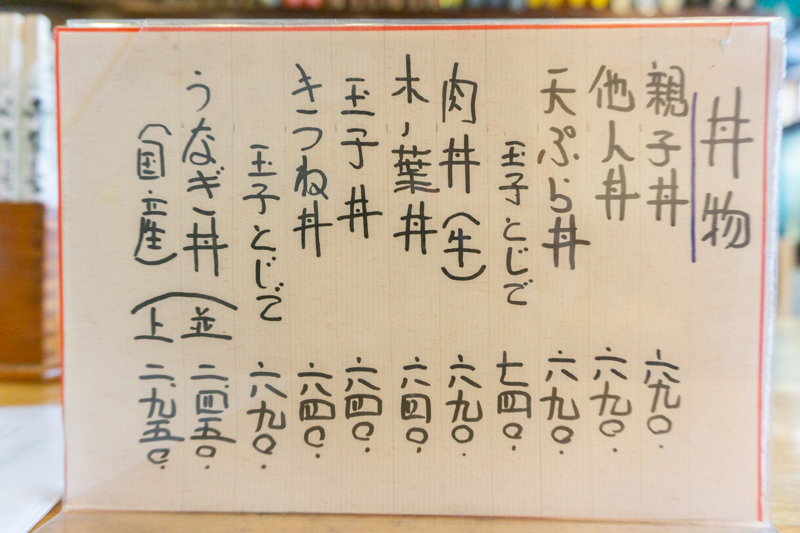 丼物
親子丼 六九〇.
他人丼 六九〇.
天ぷら丼 六九〇.
玉子とじで 七四〇.
肉丼(牛) 六九〇.
木ノ葉丼 六四〇.
玉子丼 六四〇.
きつね丼 六四〇.
玉子とじで 六九〇.
うなぎ丼(並 二、四五〇.
(国産) 上 二、九五〇.